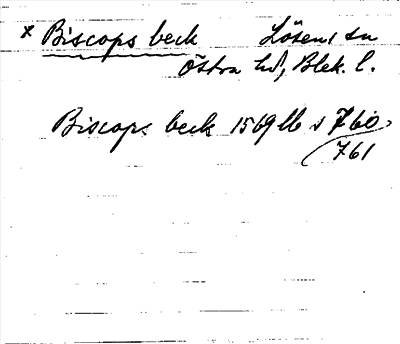 × Biscops beck Lösens sn
Östra hd, Blek. l.
Biscops beck 1569 lb s 760,
761